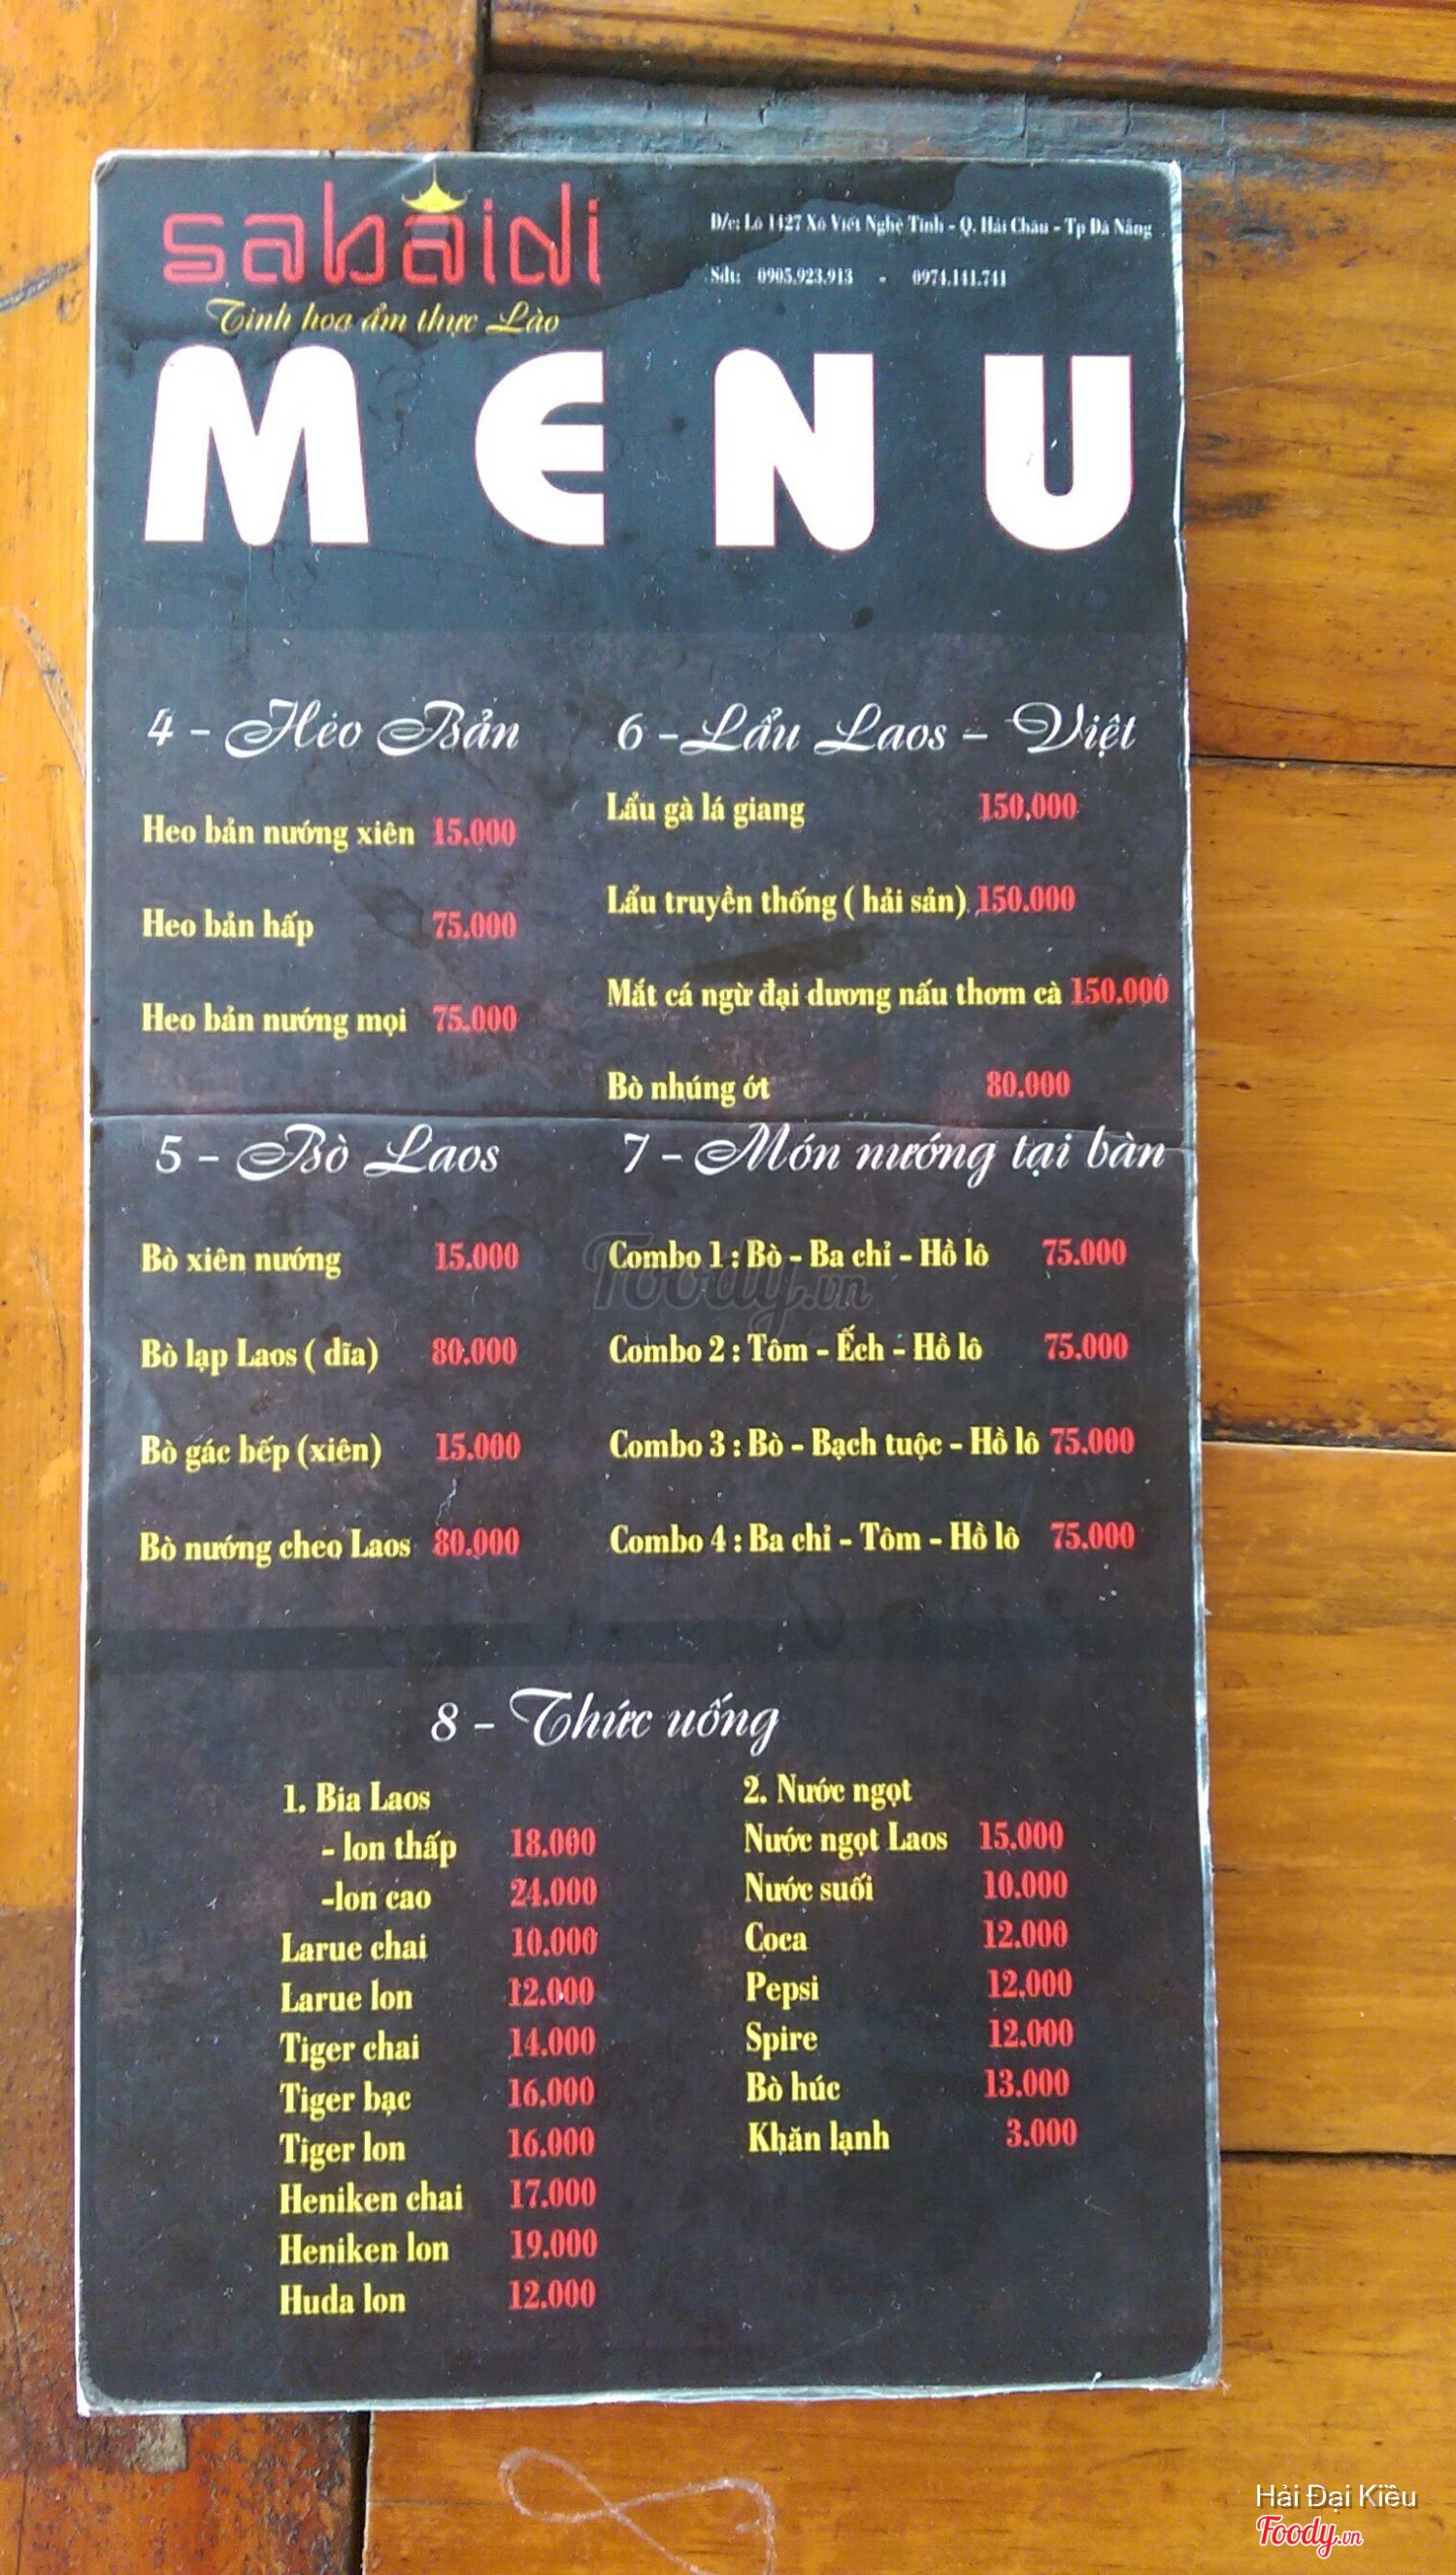 sabaidi
Tinh hoa ẩm thực Lào
Đ/c: Lô 1427 Xô Viết Nghệ Tĩnh - Q. Hải Châu - Tp Đà Nẵng
Sđt: 0905.923.913 - 0974.141.741
MENU
4 - Heo Bản
Heo bản nướng xiên 15.000
Heo bản hấp 75.000
Heo bản nướng mọi 75.000
5 - Bò Laos
Bò xiên nướng 15.000
Bò lạp Laos ( dĩa) 80.000
Bò gác bếp (xiên) 15.000
Bò nướng cheo Laos 80.000
6 - Lẩu Laos - Việt
Lẩu gà lá giang 150.000
Lẩu truyền thống ( hải sản) 150.000
Mắt cá ngừ đại dương nấu thơm cà 150.000
Bò nhúng ớt 80.000
7 - Món nướng tại bàn
Combo 1 : Bò - Ba chỉ - Hồ lô 75.000
Combo 2 : Tôm - Ếch - Hồ lô 75.000
Combo 3 : Bò - Bạch tuộc - Hồ lô 75.000
Combo 4 : Ba chỉ - Tôm - Hồ lô 75.000
8 - Thức uống
1. Bia Laos
- lon thấp 18.000
-lon cao 24.000
Larue chai 10.000
Larue lon 12.000
Tiger chai 14.000
Tiger bạc 16.000
Tiger lon 16.000
Heniken chai 17.000
Heniken lon 19.000
Huda lon 12.000
2. Nước ngọt
Nước ngọt Laos 15.000
Nước suối 10.000
Coca 12.000
Pepsi 12.000
Spire 12.000
Bò húc 13.000
Khăn lạnh 3.000
Foody.vn
Hải Đại Kiều
Foody.vn